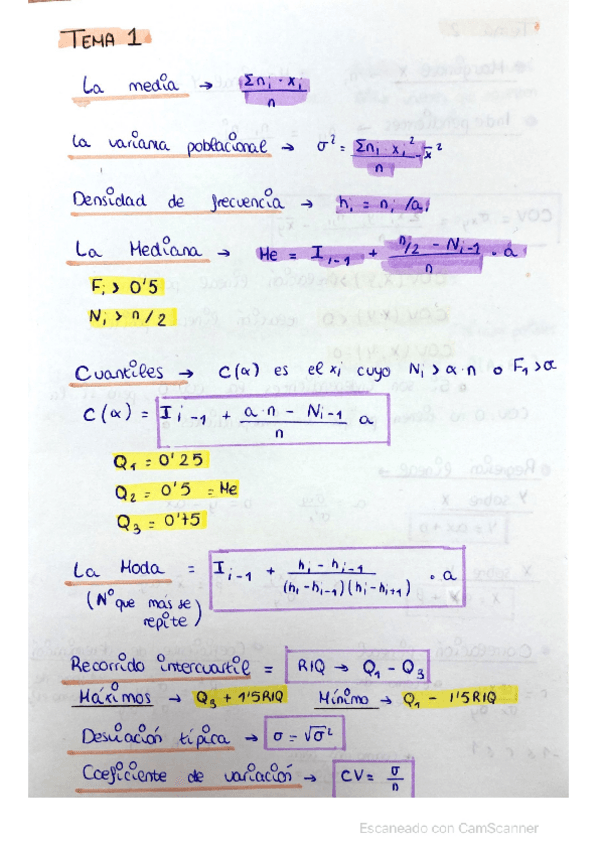 TEMA 1
La media → Σni · xi / n
La varianza poblacional → σ² = Σni · xi² / n - x̄²
Densidad de frecuencia → hi = ni /ai
La Mediana → Me = I i-1 + n/2 - Ni-1 / n · a
Fi > 0'5
Ni > n/2
Cuantiles → C(α) es el xi cuyo Ni > α·n o F1 > α
C(α) = I i -1 + a·n - Ni-1 / n a
Q1 = 0'25
Q2 = 0'5 = Me
Q3 = 0'75
La Moda = I i-1 + hi - hi-1 / (hi - hi-1)(hi - hi+1) · a
(Nº que más se
repite)
Recorrido intercuartil = RIQ → Q1 - Q3
Máximos → Q3 + 1'5RIQ Mínimo → Q1 - 1'5RIQ
Desviación típica → σ = √σ²
Coeficiente de variación → CV = σ / n
Escaneado con CamScanner